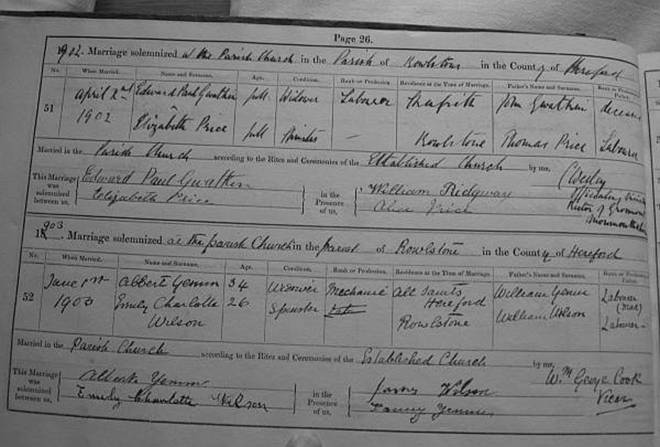 Page 26.
1902. Marriage solemnized at the Parish Church in the Parish of Rowlstone in the County of Hereford
No. When Married. Name and Surname. Age. Condition. Rank or Profession. Residence at the Time of Marriage. Father's Name and Surname. Rank or Profession of Father.
51 April 2nd 1902 Edward Paul Gwatkin full Widower Labourer John Gwatkin
Elizabeth Price full Spinster — Rowlstone Thomas Price Labourer
Married in the Parish Church according to the Rites and Ceremonies of the Established Church by me,
This Marriage was solemnized between us, Edward Paul Gwatkin in the Presence of us, William Ridgway
Elizabeth Price Alice Price
1903 Marriage solemnized at the parish Church in the parish of Rowlstone in the County of Hereford
No. When Married. Name and Surname. Age. Condition. Rank or Profession. Residence at the Time of Marriage. Father's Name and Surname. Rank or Profession of Father.
52 June 1st 1903 Albert Yemm 34 Widower Mechanic All Saints Hereford William Yemm Labourer
Emily Charlotte Wilson 26 Spinster Rowlstone William Wilson Labourer
Married in the Parish Church according to the Rites and Ceremonies of the Established Church by me,
Wm George Cook
Vicar
This Marriage was solemnized between us, Albert Yemm in the Presence of us, James Wilson
Emily Charlotte Wilson Fanny Yemm